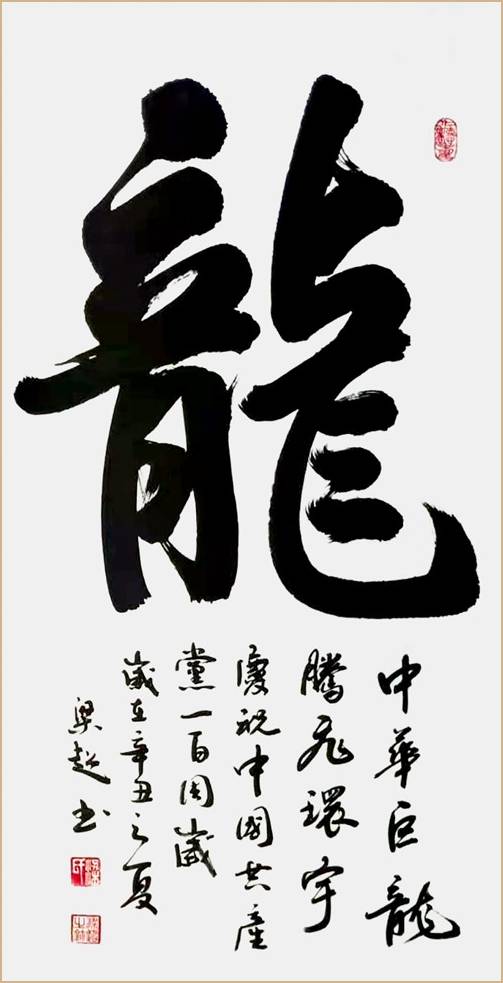 龍
中華巨龍
騰飛環宇
慶祝中國共產
黨一百周歲
歲在辛丑之夏
梁超书